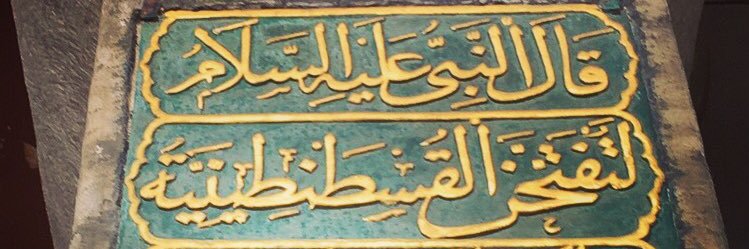 قَالَ النَّبِيُّ عَلَيْهِ السَّلَامُ
لَتُفْتَحَنَّ الْقُسْطَنْطِينِيَّةُ